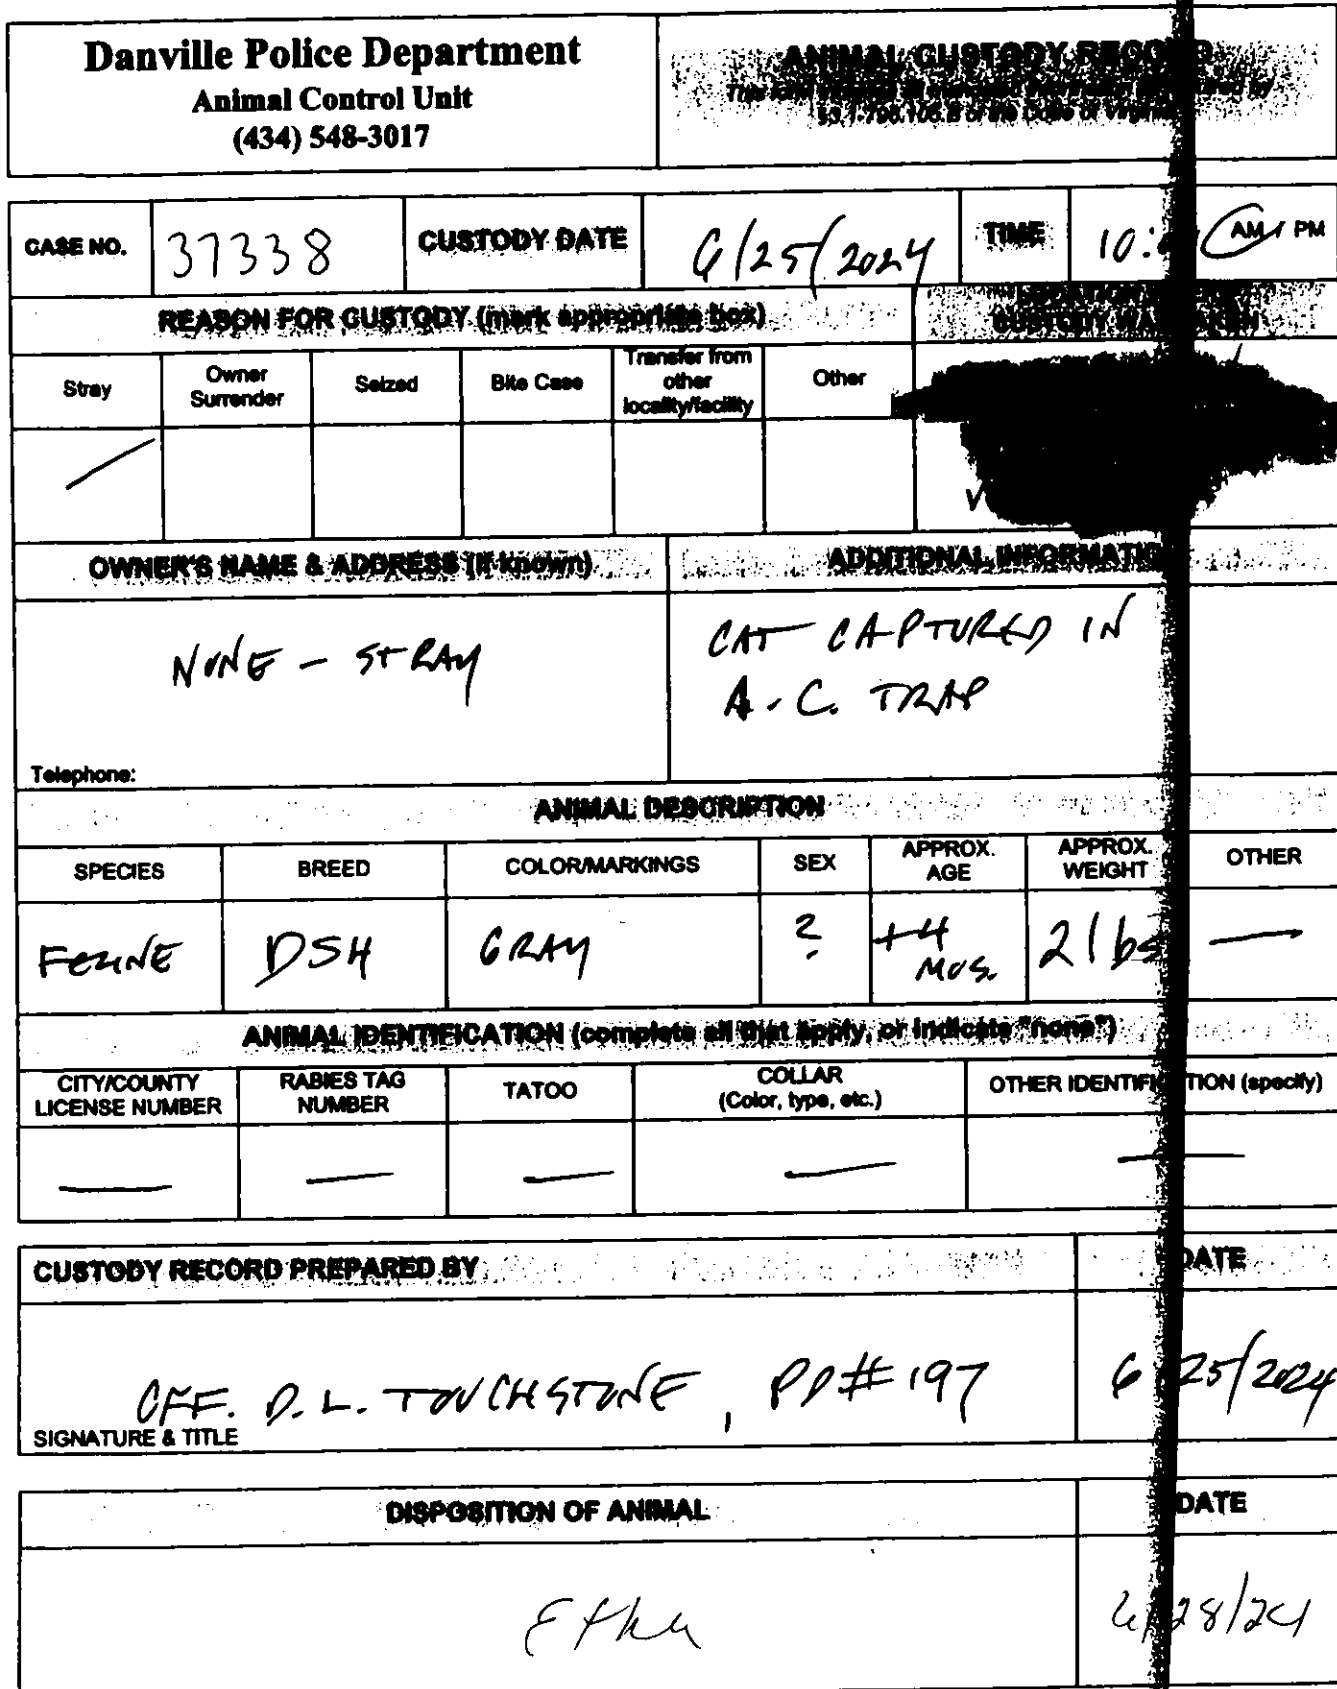 Danville Police Department
Animal Control Unit
(434) 548-3017
ANIMAL CUSTODY RECORD
§3.1-796.105.B of the Code of Virginia
CASE NO. 37338 CUSTODY DATE 6/25/2024 TIME 10: AM / PM
REASON FOR CUSTODY (mark appropriate box)
CUSTODY WAS TAKEN
Stray Owner Surrender Seized Bite Case Transfer from other locality/facility Other
OWNER'S NAME & ADDRESS (if known) ADDITIONAL INFORMATION
NONE - STRAY
CAT CAPTURED IN
A.C. TRAP
Telephone:
ANIMAL DESCRIPTION
SPECIES BREED COLOR/MARKINGS SEX APPROX. AGE APPROX. WEIGHT OTHER
FELINE DSH GRAY ? +4 MOS. 2 lbs —
ANIMAL IDENTIFICATION (complete all that apply, or indicate "none")
CITY/COUNTY LICENSE NUMBER RABIES TAG NUMBER TATOO COLLAR (Color, type, etc.) OTHER IDENTIFICATION (specify)
— — — — —
CUSTODY RECORD PREPARED BY DATE
OFF. D.L. TOUCHSTONE, PD# 197 6/25/2024
SIGNATURE & TITLE
DISPOSITION OF ANIMAL DATE
6/28/24